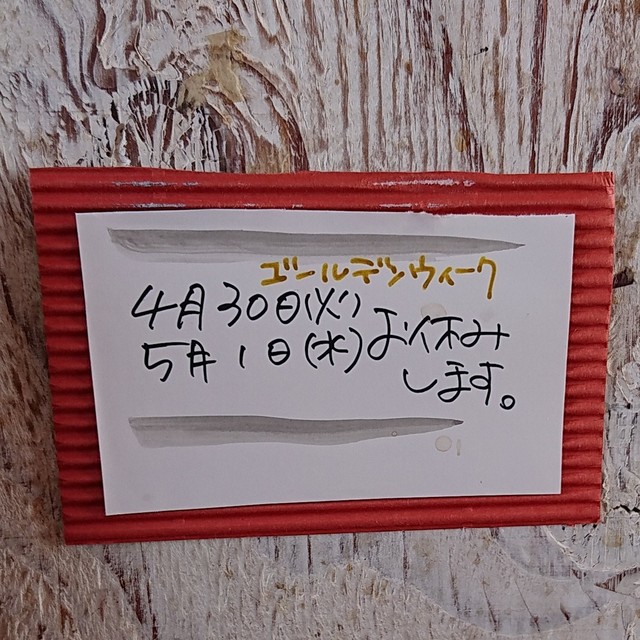 ゴールデンウィーク
4月30日(火)
5月1日(水)お休み
します。